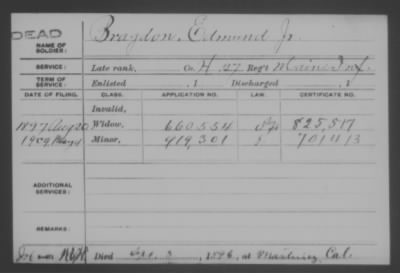 DEAD
NAME OF SOLDIER: Braydon, Edmund Jr.
SERVICE: Late rank, Co. H, 27 Reg't Maine Inf.
TERM OF SERVICE: Enlisted , 1 Discharged , 1
DATE OF FILING. CLASS. APPLICATION NO. LAW. CERTIFICATE NO.
Invalid,
1897 Aug 20 Widow, 660.554 825,517
1909 Minor, 919,301 701413
ADDITIONAL SERVICES:
REMARKS:
Died 2, 1896, at Cal.